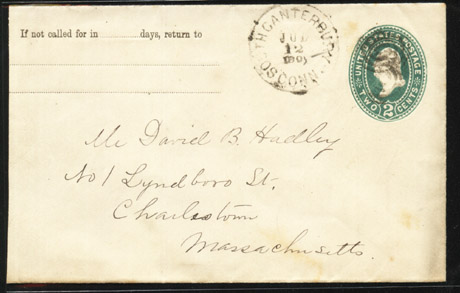 If not called for in ______ days, return to
SOUTH CANTERBURY
JUL
12
CONN.
UNITED STATES POSTAGE
2
TWO CENTS
Mr David B. Hadley
No 1 Lyndboro St.
Charlestown
Massachusetts.